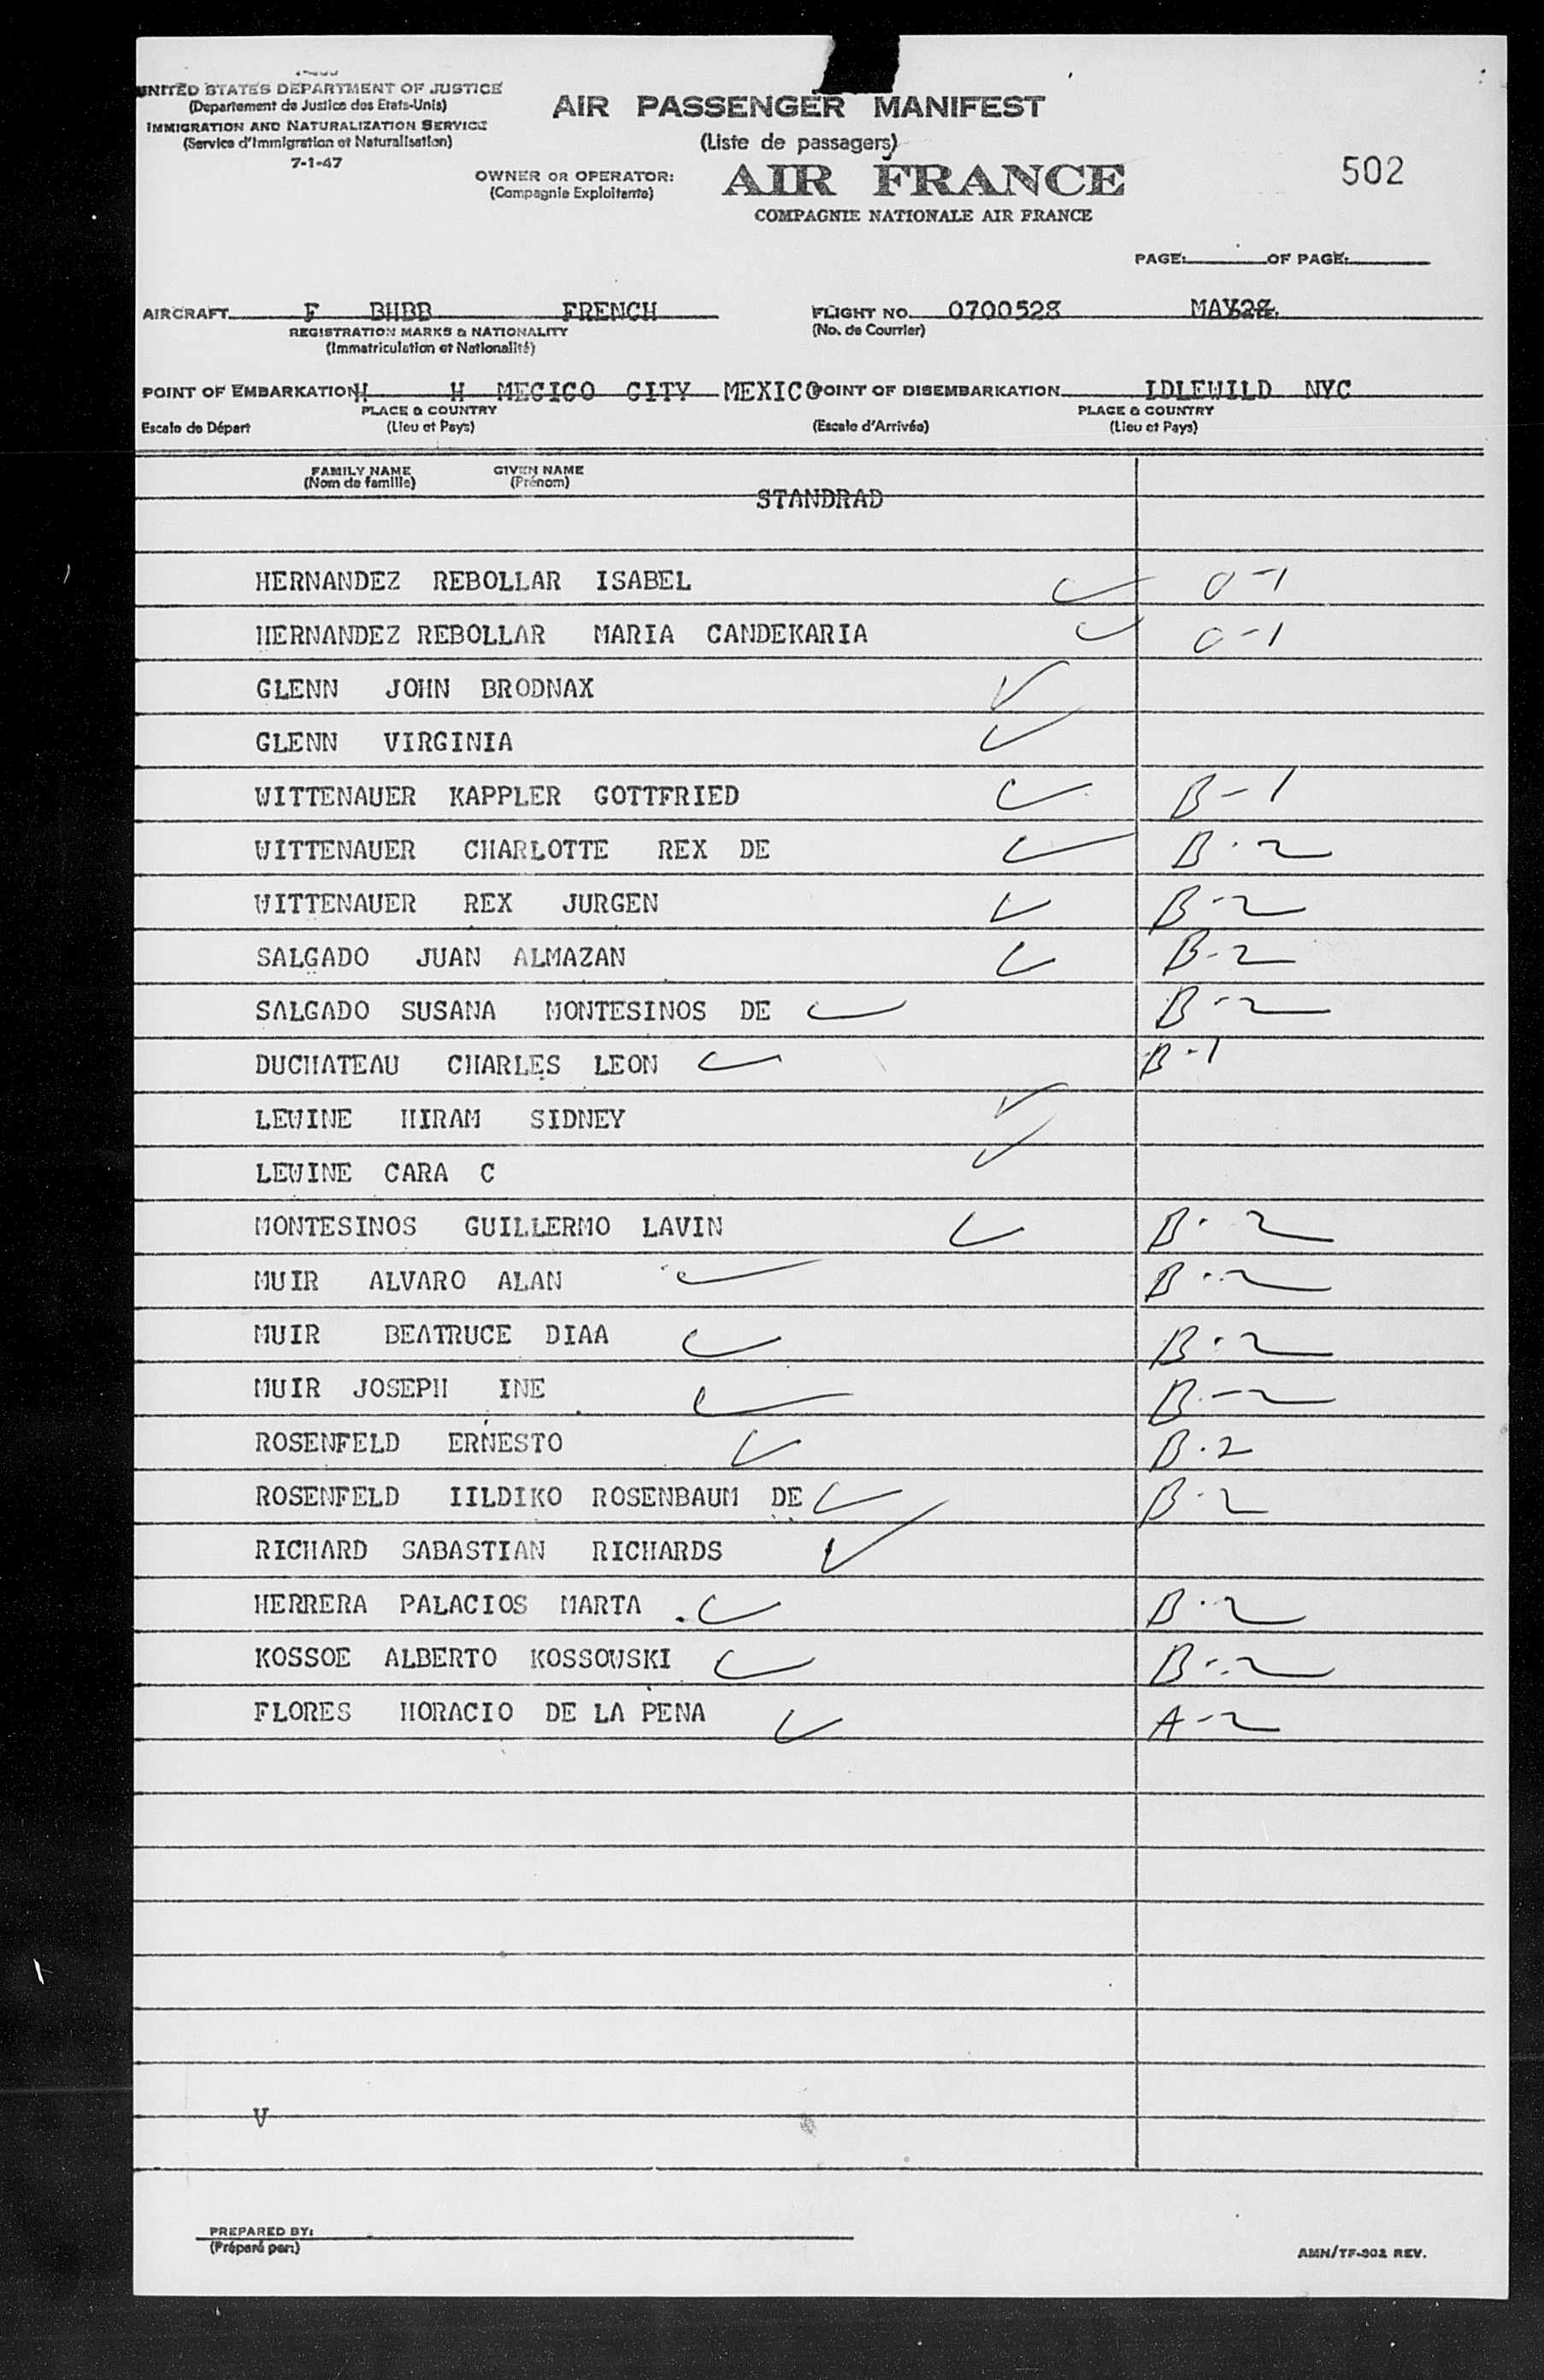 UNITED STATES DEPARTMENT OF JUSTICE
(Departement de Justice des Etats-Unis)
IMMIGRATION AND NATURALIZATION SERVICE
(Service d'Immigration et Naturalisation)
7-1-47
AIR PASSENGER MANIFEST
(Liste de passagers)
OWNER OR OPERATOR:
(Compagnie Exploitante)
AIR FRANCE
COMPAGNIE NATIONALE AIR FRANCE
502
PAGE: OF PAGE:
AIRCRAFT F BHBB FRENCH FLIGHT NO. 0700528 MAY28.
REGISTRATION MARKS & NATIONALITY (No. de Courrier)
(Immatriculation et Nationalité)
POINT OF EMBARKATION H H MECICO CITY MEXICO POINT OF DISEMBARKATION IDLEWILD NYC
PLACE & COUNTRY PLACE & COUNTRY
Escale de Départ (Lieu et Pays) (Escale d'Arrivée) (Lieu et Pays)
FAMILY NAME GIVEN NAME
(Nom de famille) (Prénom)
STANDRAD
HERNANDEZ REBOLLAR ISABEL ✓ 0-1
HERNANDEZ REBOLLAR MARIA CANDEKARIA ✓ 0-1
GLENN JOHN BRODNAX ✓
GLENN VIRGINIA ✓
WITTENAUER KAPPLER GOTTFRIED ✓ B-1
WITTENAUER CHARLOTTE REX DE ✓ B-2
WITTENAUER REX JURGEN ✓ B-2
SALGADO JUAN ALMAZAN ✓ B-2
SALGADO SUSANA MONTESINOS DE ✓ B-2
DUCHATEAU CHARLES LEON ✓ B-1
LEWINE HIRAM SIDNEY ✓
LEWINE CARA C ✓
MONTESINOS GUILLERMO LAVIN ✓ B-2
MUIR ALVARO ALAN ✓ B-2
MUIR BEATRUCE DIAA ✓ B-2
MUIR JOSEPH INE ✓ B-2
ROSENFELD ERNESTO ✓ B-2
ROSENFELD IILDIKO ROSENBAUM DE ✓ B-2
RICHARD SABASTIAN RICHARDS ✓
HERRERA PALACIOS MARTA ✓ B-2
KOSSOE ALBERTO KOSSOWSKI ✓ B-2
FLORES HORACIO DE LA PENA ✓ A-2
V
PREPARED BY:
(Préparé par:)
AMN/TF-302 REV.